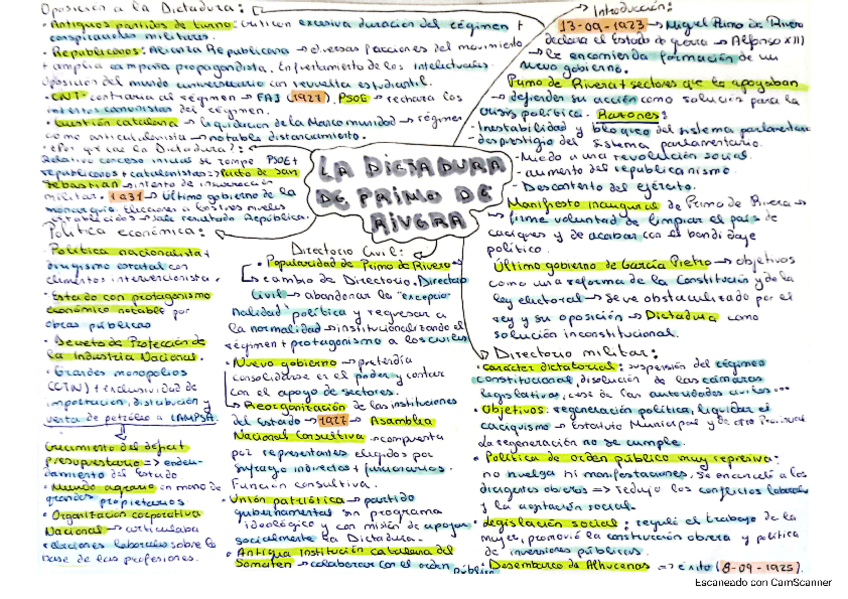 Oposición a la Dictadura:
· Antiguos partidos de turno: critican excesiva duración del régimen +
conspiraciones militares.
· Republicanos: Alianza Republicana → diversas facciones del movimiento
+ amplia campaña propagandista. Enfrentamiento de los intelectuales.
Oposición del mundo universitario con revuelta estudiantil.
· CNT contraria al régimen → FAI (1927). PSOE → rechaza los
intentos del régimen.
· Cuestión catalana → liquidación de la Mancomunidad → régimen
como anticatalanista → notable distanciamiento.
¿Por qué cae la Dictadura?:
Relativo consenso inicial se rompe PSOE +
republicanos + catalanistas → Pacto de San
Sebastián → intento de insurrección
militar. 1931 → Último gobierno de la
monarquía. Elecciones a
→ sale resultado República.
LA DICTADURA
DE PRIMO DE
RIVERA
Introducción:
13-09-1923 → Miguel Primo de Rivera
declara el Estado de guerra → Alfonso XIII
→ le encomienda formación de un
nuevo gobierno.
Primo de Rivera + sectores que lo apoyaban
→ defienden su acción como solución para la
crisis política. Razones:
- Inestabilidad y bloqueo del sistema parlamentario
desprestigio del sistema parlamentario.
- Miedo a una revolución social.
- aumento del republicanismo.
- Descontento del ejército.
Manifiesto inaugural de Primo de Rivera →
firme voluntad de limpiar el país de
caciques y de acabar con el bandidaje
político.
Último gobierno de García Prieto → objetivos
como una reforma de la Constitución y de la
ley electoral → se ve obstaculizado por el
rey y su oposición → Dictadura como
solución inconstitucional.
Política económica:
· Política nacionalista +
dirigismo estatal con
elementos intervencionista.
· Estado con protagonismo
económico notable por
obras públicas
· Decreto de Protección de
la Industria Nacional.
· Grandes monopolios
(CTN) + exclusividad de
importación, distribución y
venta de petróleo a CAMPSA.
Crecimiento del déficit
presupuestario => endeu-
damiento del Estado
· Mundo agrario en mano de
grandes propietarios
· Organización corporativa
Nacional → articulaba
relaciones laborales sobre la
base de las profesiones.
Directorio Civil:
· Popularidad de Primo de Rivera →
cambio de Directorio. Directorio
Civil → abandonar la "excepcio-
nalidad" política y regresar a
la normalidad → institucionalizando el
régimen + protagonismo a los civiles
· Nuevo gobierno → pretendía
consolidarse en el poder y contar
con el apoyo de sectores.
→ Reorganización de las instituciones
del Estado → 1927 → Asamblea
Nacional Consultiva → compuesta
por representantes elegidos por
sufragio indirectos + funcionarios.
Función consultiva.
· Unión patriótica → partido
gubernamental sin programa
ideológico y con misión de apoyar
socialmente la Dictadura.
· Antigua Institución catalana del
Somatén → colaborar con el orden público
Directorio militar:
· Carácter dictatorial: suspensión del régimen
constitucional, disolución de las cámaras
legislativas, cese de las autoridades civiles...
· Objetivos: regeneración política, liquidar el
caciquismo → Estatuto Municipal y de otro Provincial
La regeneración no se cumple.
· Política de orden público muy represiva:
no huelga ni manifestaciones. Se encarceló a los
dirigentes obreros => redujo los conflictos laborales
y la agitación social.
· Legislación social: reguló el trabajo de la
mujer, promovió la construcción obrera y política
de inversiones públicas.
· Desembarco de Alhucemas => éxito (8-09-1925).
Escaneado con CamScanner